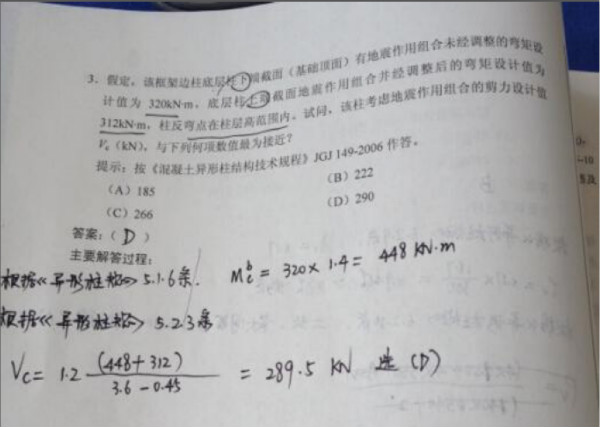 3. 假定，该框架边柱底层柱下端截面（基础顶面）有地震作用组合未经调整的弯矩设
计值为 320kN·m，底层柱上端截面地震作用组合并经调整后的弯矩设计值为
312kN·m，柱反弯点在柱层高范围内。试问，该柱考虑地震作用组合的剪力设计值
Vc（kN），与下列何项数值最为接近？
提示：按《混凝土异形柱结构技术规程》JGJ 149-2006 作答。
（A）185 （B）222
（C）266 （D）290
答案：（D）
主要解答过程：
根据《异形柱规》5.1.6条. Mcᵇ = 320×1.4 = 448 KN·m
根据《异形柱规》5.2.3条
Vc = 1.2 (448+312) / (3.6-0.45) = 289.5 KN 选 (D)